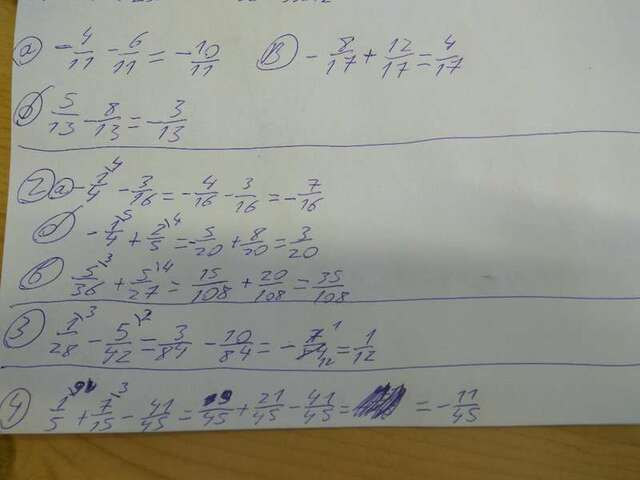 а) -4/11 - 6/11 = -10/11 в) -8/17 + 12/17 = 4/17
б) 5/13 - 8/13 = -3/13
2) а) -1/4^4 - 3/16 = -4/16 - 3/16 = -7/16
б) -1/4^5 + 2/5^4 = -5/20 + 8/20 = 3/20
в) 5/36^3 + 5/27^4 = 15/108 + 20/108 = 35/108
3) 1/28^3 - 5/42^2 = 3/84 - 10/84 = -7/84 ^1 12 = 1/12
4) 1/5^9 + 7/15^3 - 41/45 = 9/45 + 21/45 - 41/45 = = -11/45